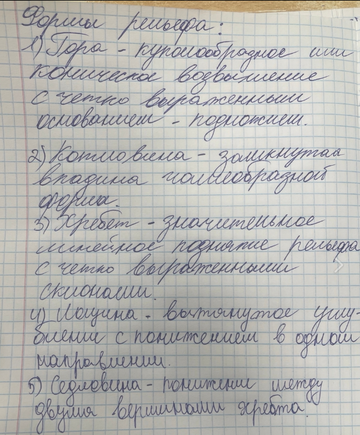 Формы рельефа:
1) Гора - куполообразное или
коническое возвышение
с четко выраженными
основанием - подножием.
2) Котловина - замкнутая
впадина чашеобразной
форма.
3) Хребет - значительное
линейное поднятие рельефа
с четко выраженными
склонами.
4) Лощина - вытянутое углу-
бление с понижением в одном
направлении.
5) Седловина - понижении между
двумя вершинами хребта.